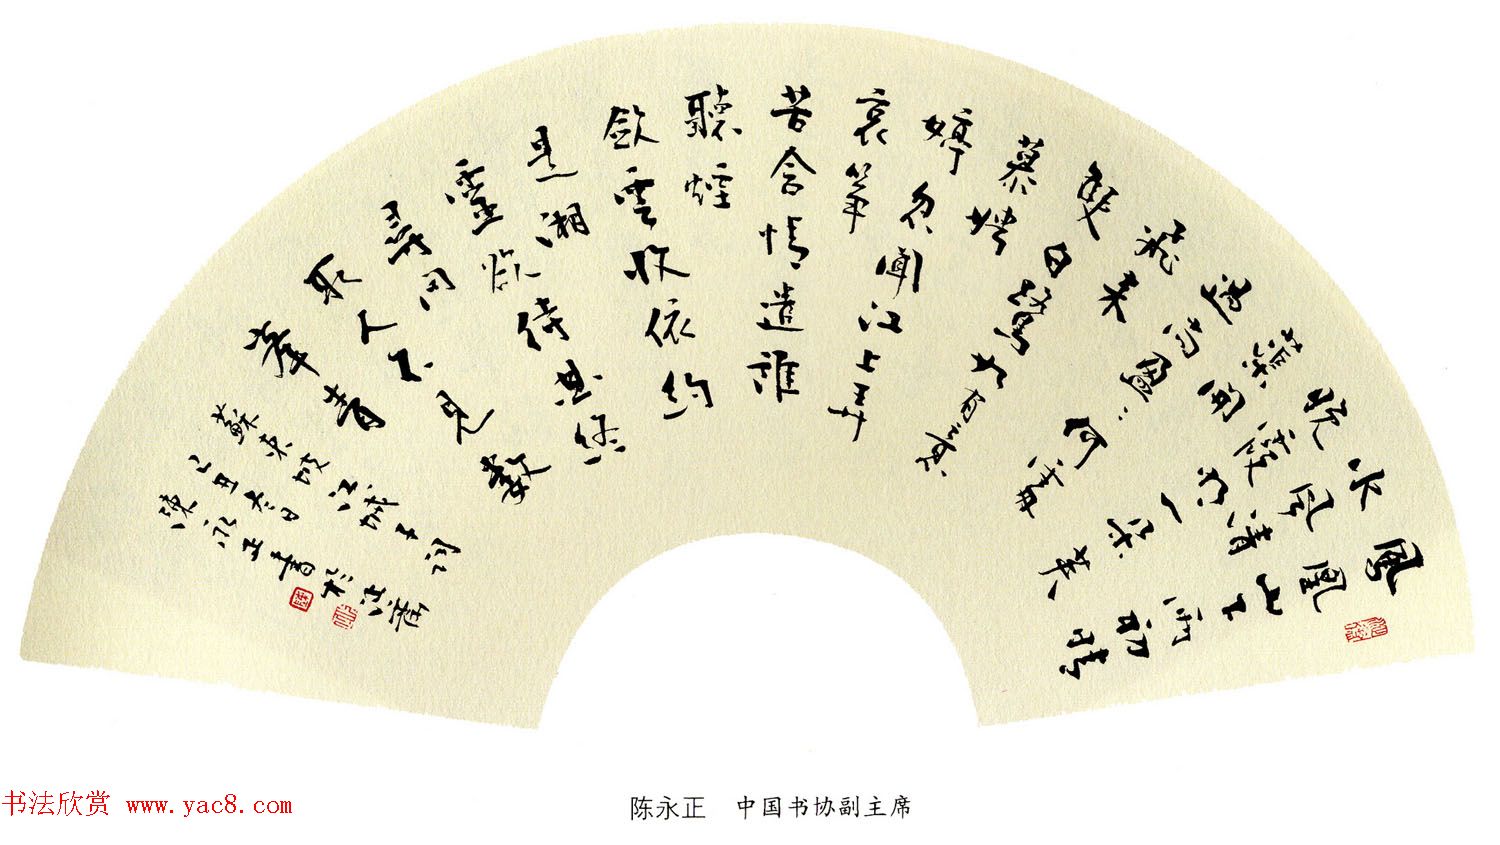 鳳凰山下雨初晴
水風清
晚霞明一朵芙
蕖開
過尚盈:何處
飛來
雙白鷺如有意
慕娉
婷忽聞江上弄
哀箏
苦含情遣誰
聽煙
斂雲收依約
是湘
靈欲待曲終
尋問
取人不見數
峯青
蘇東坡江城子詞
乙丑冬日
陳永正書於沚齋
书法欣赏 www.yac8.com
陈永正 中国书协副主席